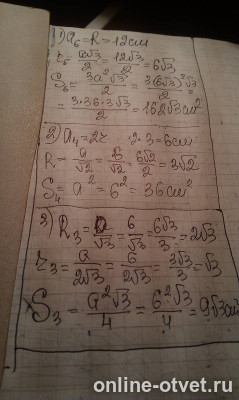 1) a₆ = R = 12см
r₆ = a√3/2 = 12√3/2 = 6√3
S₆ = 3a²√3/2 = 3(6√3)²√3/2 =
= 3·36·3√3/2 = 162√3 см²
2) a₄ = 2r 2·3 = 6см
R = a/√2 = 6/√2 = 6√2/2 = 3√2
S₄ = a² = 6² = 36см²
3) R₃ = a/√3 = 6/√3 = 6√3/3 = 2√3
r₃ = a/2√3 = 6/2√3 = 3√3/3 = √3
S₃ = a²√3/4 = 6²√3/4 = 9√3см²
online-otvet.ru